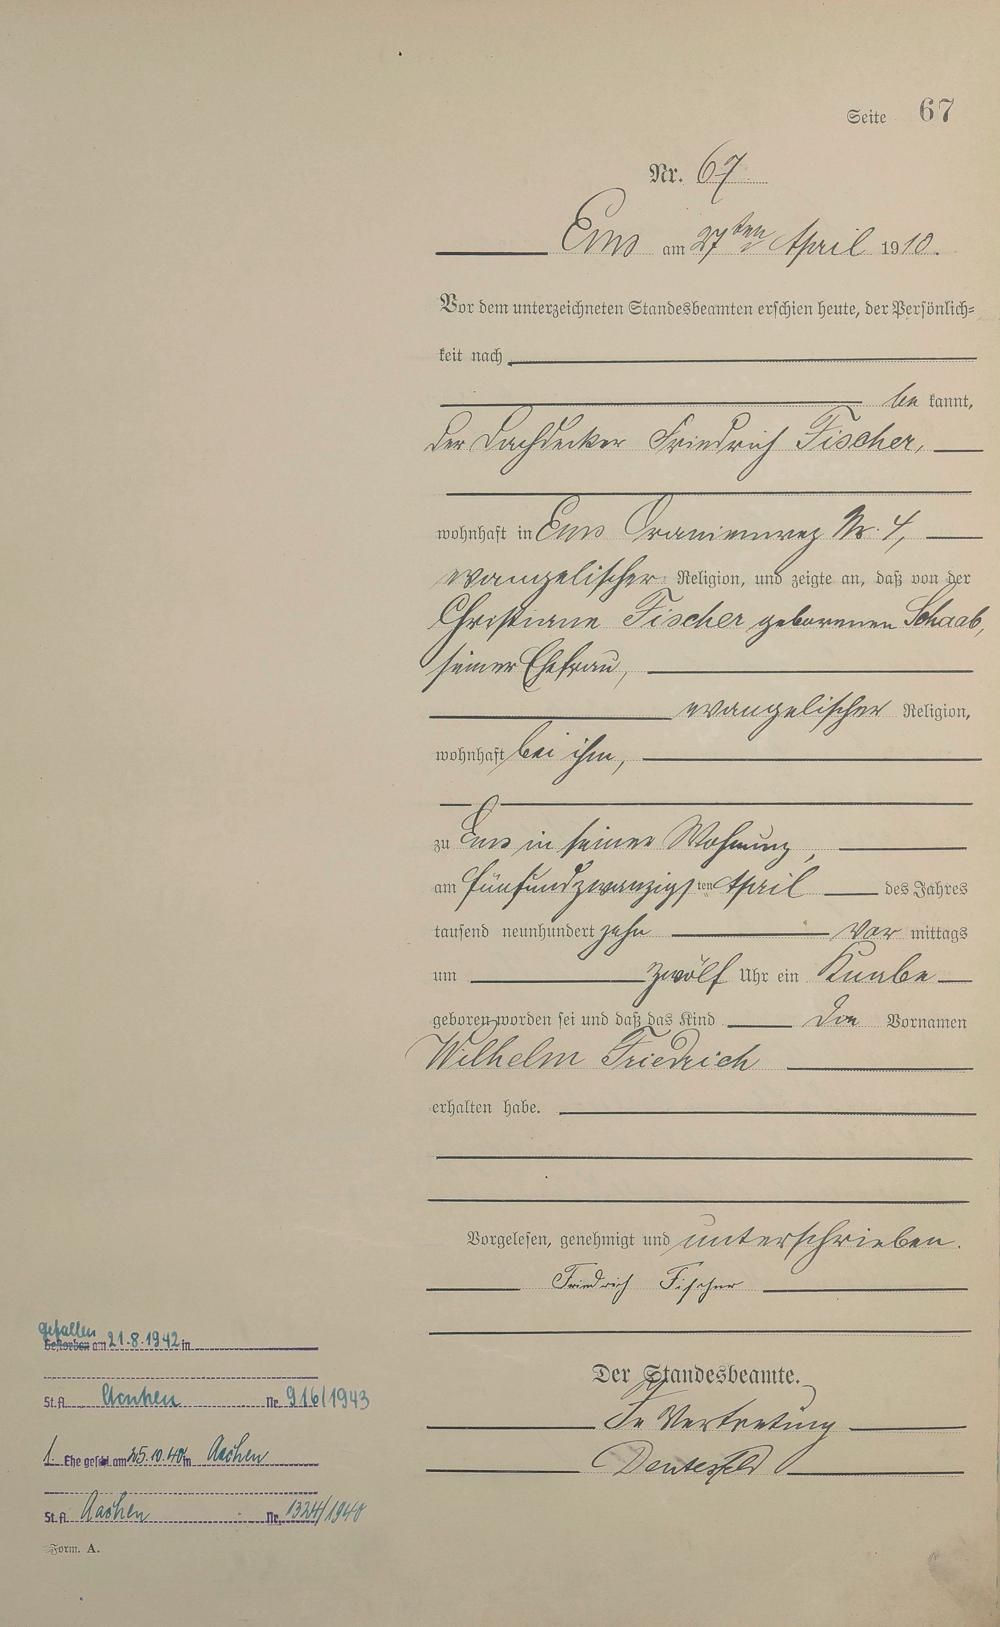 Seite 67
Nr. 67
Ems am 27ten April 1910.
Vor dem unterzeichneten Standesbeamten erschien heute, der Persönlich=
keit nach
be kannt,
der Dachdecker Friedrich Fischer,
wohnhaft in Ems Oranienweg Nr. 4,
evangelischer Religion, und zeigte an, daß von der
Christiane Fischer geborenen Schaab,
seiner Ehefrau,
evangelischer Religion,
wohnhaft bei ihm,
zu Ems in seiner Wohnung,
am fünfundzwanzigsten April des Jahres
tausend neunhundert zehn Vor mittags
um zwölf Uhr ein Knabe
geboren worden sei und daß das Kind die Vornamen
Wilhelm Friedrich
erhalten habe.
Vorgelesen, genehmigt und unterschrieben.
Friedrich Fischer
Der Standesbeamte.
In Vertretung
gefallen
Gestorben am 21.8.1942 in
St. A. Aachen Nr. 916/1943
1. Ehe geschl. am 25.10.40 in Aachen
St. A. Aachen Nr. 1324/1940
Form. A.